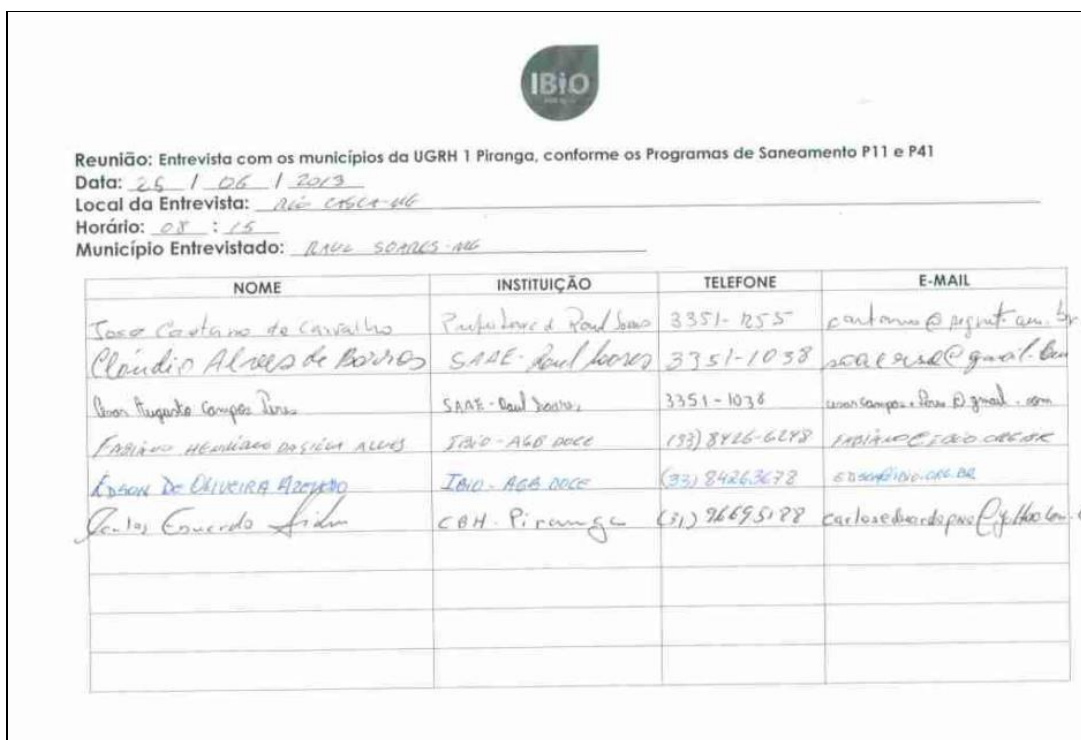 IBiO
Reunião: Entrevista com os municípios da UGRH 1 Piranga, conforme os Programas de Saneamento P11 e P41
Data: 25 / 06 / 2013
Local da Entrevista: Rio Casca-MG
Horário: 08 : 15
Município Entrevistado: RAUL SOARES-MG
NOME INSTITUIÇÃO TELEFONE E-MAIL
José Caetano de Carvalho Raul Soares 3351-1255
Cláudio Alves de Barros SAAE-Raul Soares 3351-1038
Augusto Campos SAAE-Raul Soares 3351-1038
FABIANO HENRIQUE DA SILVA ALVES IBIO-AGB DOCE (33) 8426-6248
ÉDSON DE OLIVEIRA AZEVEDO IBIO-AGB DOCE (33) 84263678 EDSON@IBIO.ORG.BR
Carlos Eduardo CBH-Piranga (31) 96695188